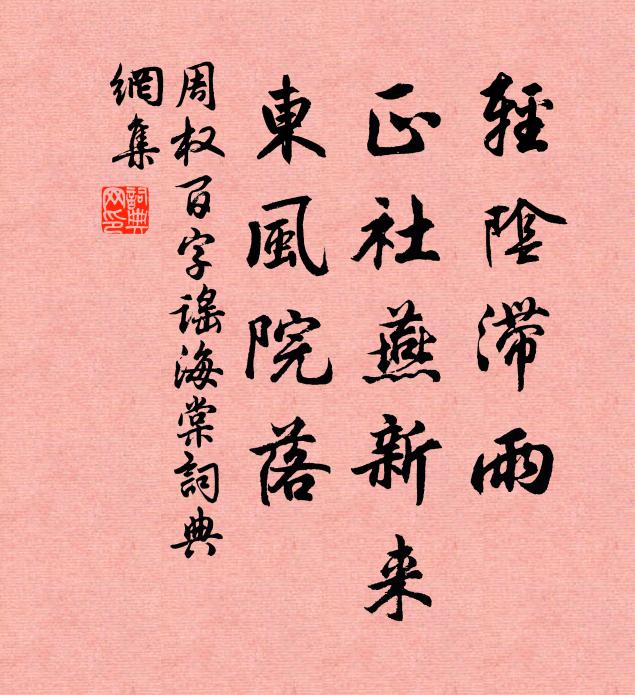 輕陰滯雨
正社燕新来
東風院落
周权百字谣海棠詞典
網集
詞典
网印